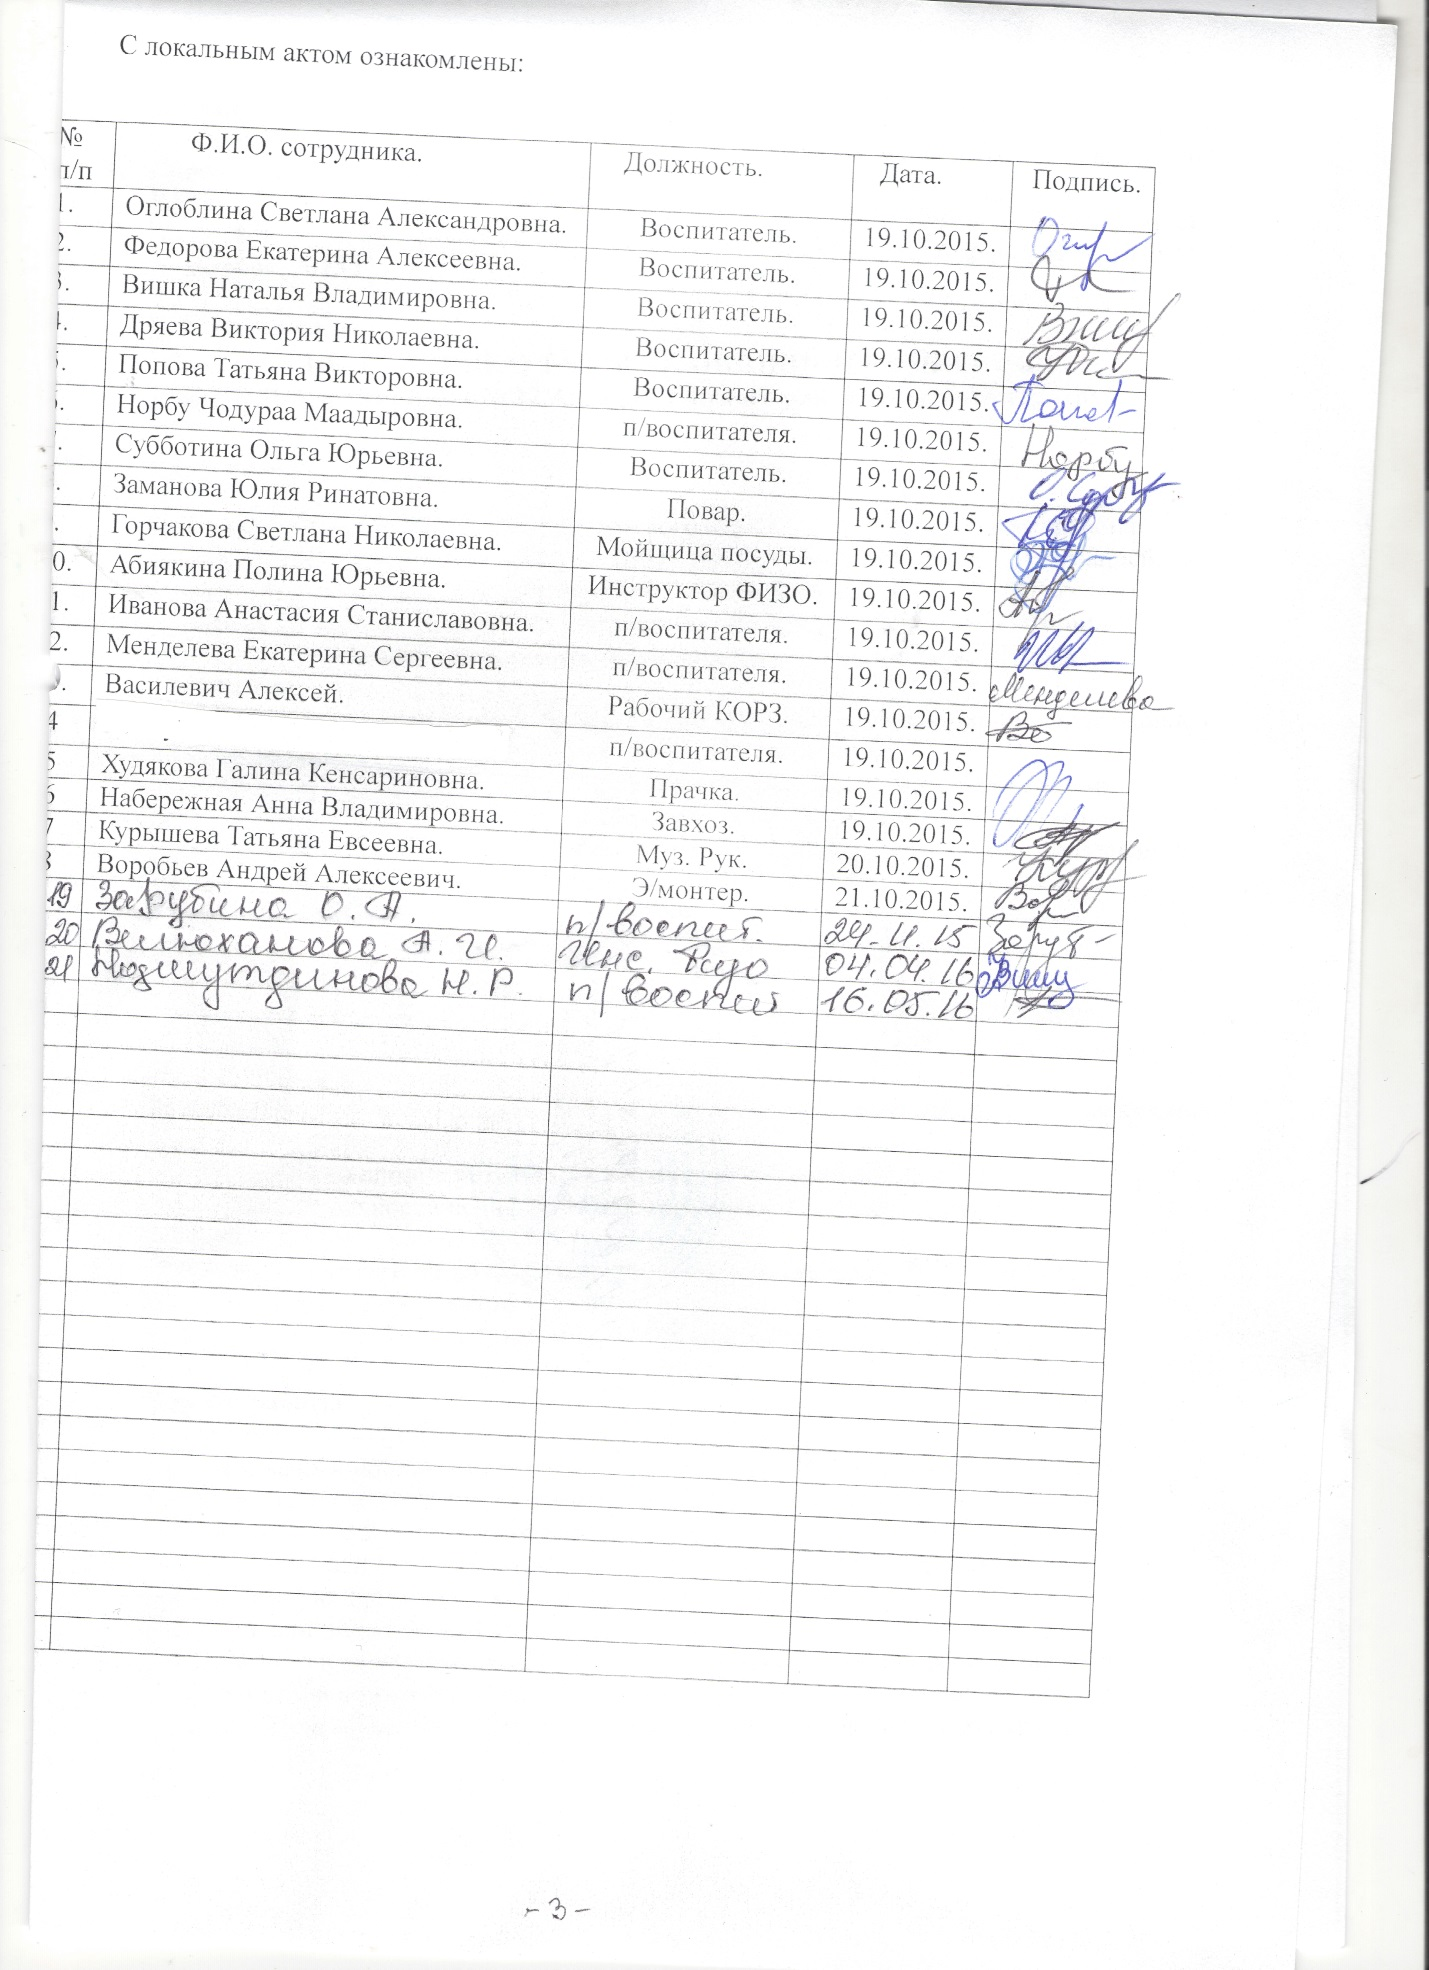 С локальным актом ознакомлены:
№ п/п Ф.И.О. сотрудника. Должность. Дата. Подпись.
1. Оглоблина Светлана Александровна. Воспитатель. 19.10.2015.
2. Федорова Екатерина Алексеевна. Воспитатель. 19.10.2015.
3. Вишка Наталья Владимировна. Воспитатель. 19.10.2015.
4. Дряева Виктория Николаевна. Воспитатель. 19.10.2015.
5. Попова Татьяна Викторовна. Воспитатель. 19.10.2015.
6. Норбу Чодураа Маадыровна. п/воспитателя. 19.10.2015. Норбу
. Субботина Ольга Юрьевна. Воспитатель. 19.10.2015.
. Заманова Юлия Ринатовна. Повар. 19.10.2015.
. Горчакова Светлана Николаевна. Мойщица посуды. 19.10.2015.
0. Абиякина Полина Юрьевна. Инструктор ФИЗО. 19.10.2015.
1. Иванова Анастасия Станиславовна. п/воспитателя. 19.10.2015.
2. Менделева Екатерина Сергеевна. п/воспитателя. 19.10.2015. Менделева
. Василевич Алексей. Рабочий КОРЗ. 19.10.2015.
4 п/воспитателя. 19.10.2015.
5 Худякова Галина Кенсариновна. Прачка. 19.10.2015.
6 Набережная Анна Владимировна. Завхоз. 19.10.2015.
7 Курышева Татьяна Евсеевна. Муз. Рук. 20.10.2015.
8 Воробьев Андрей Алексеевич. Э/монтер. 21.10.2015.
19 Зарубина О. А. п/воспит. 24.11.15
20 Велюханова А. И. Инс. Физо 04.04.16
21 Нажмутдинова Н. Р. п/воспит 16.05.16
- 3 -